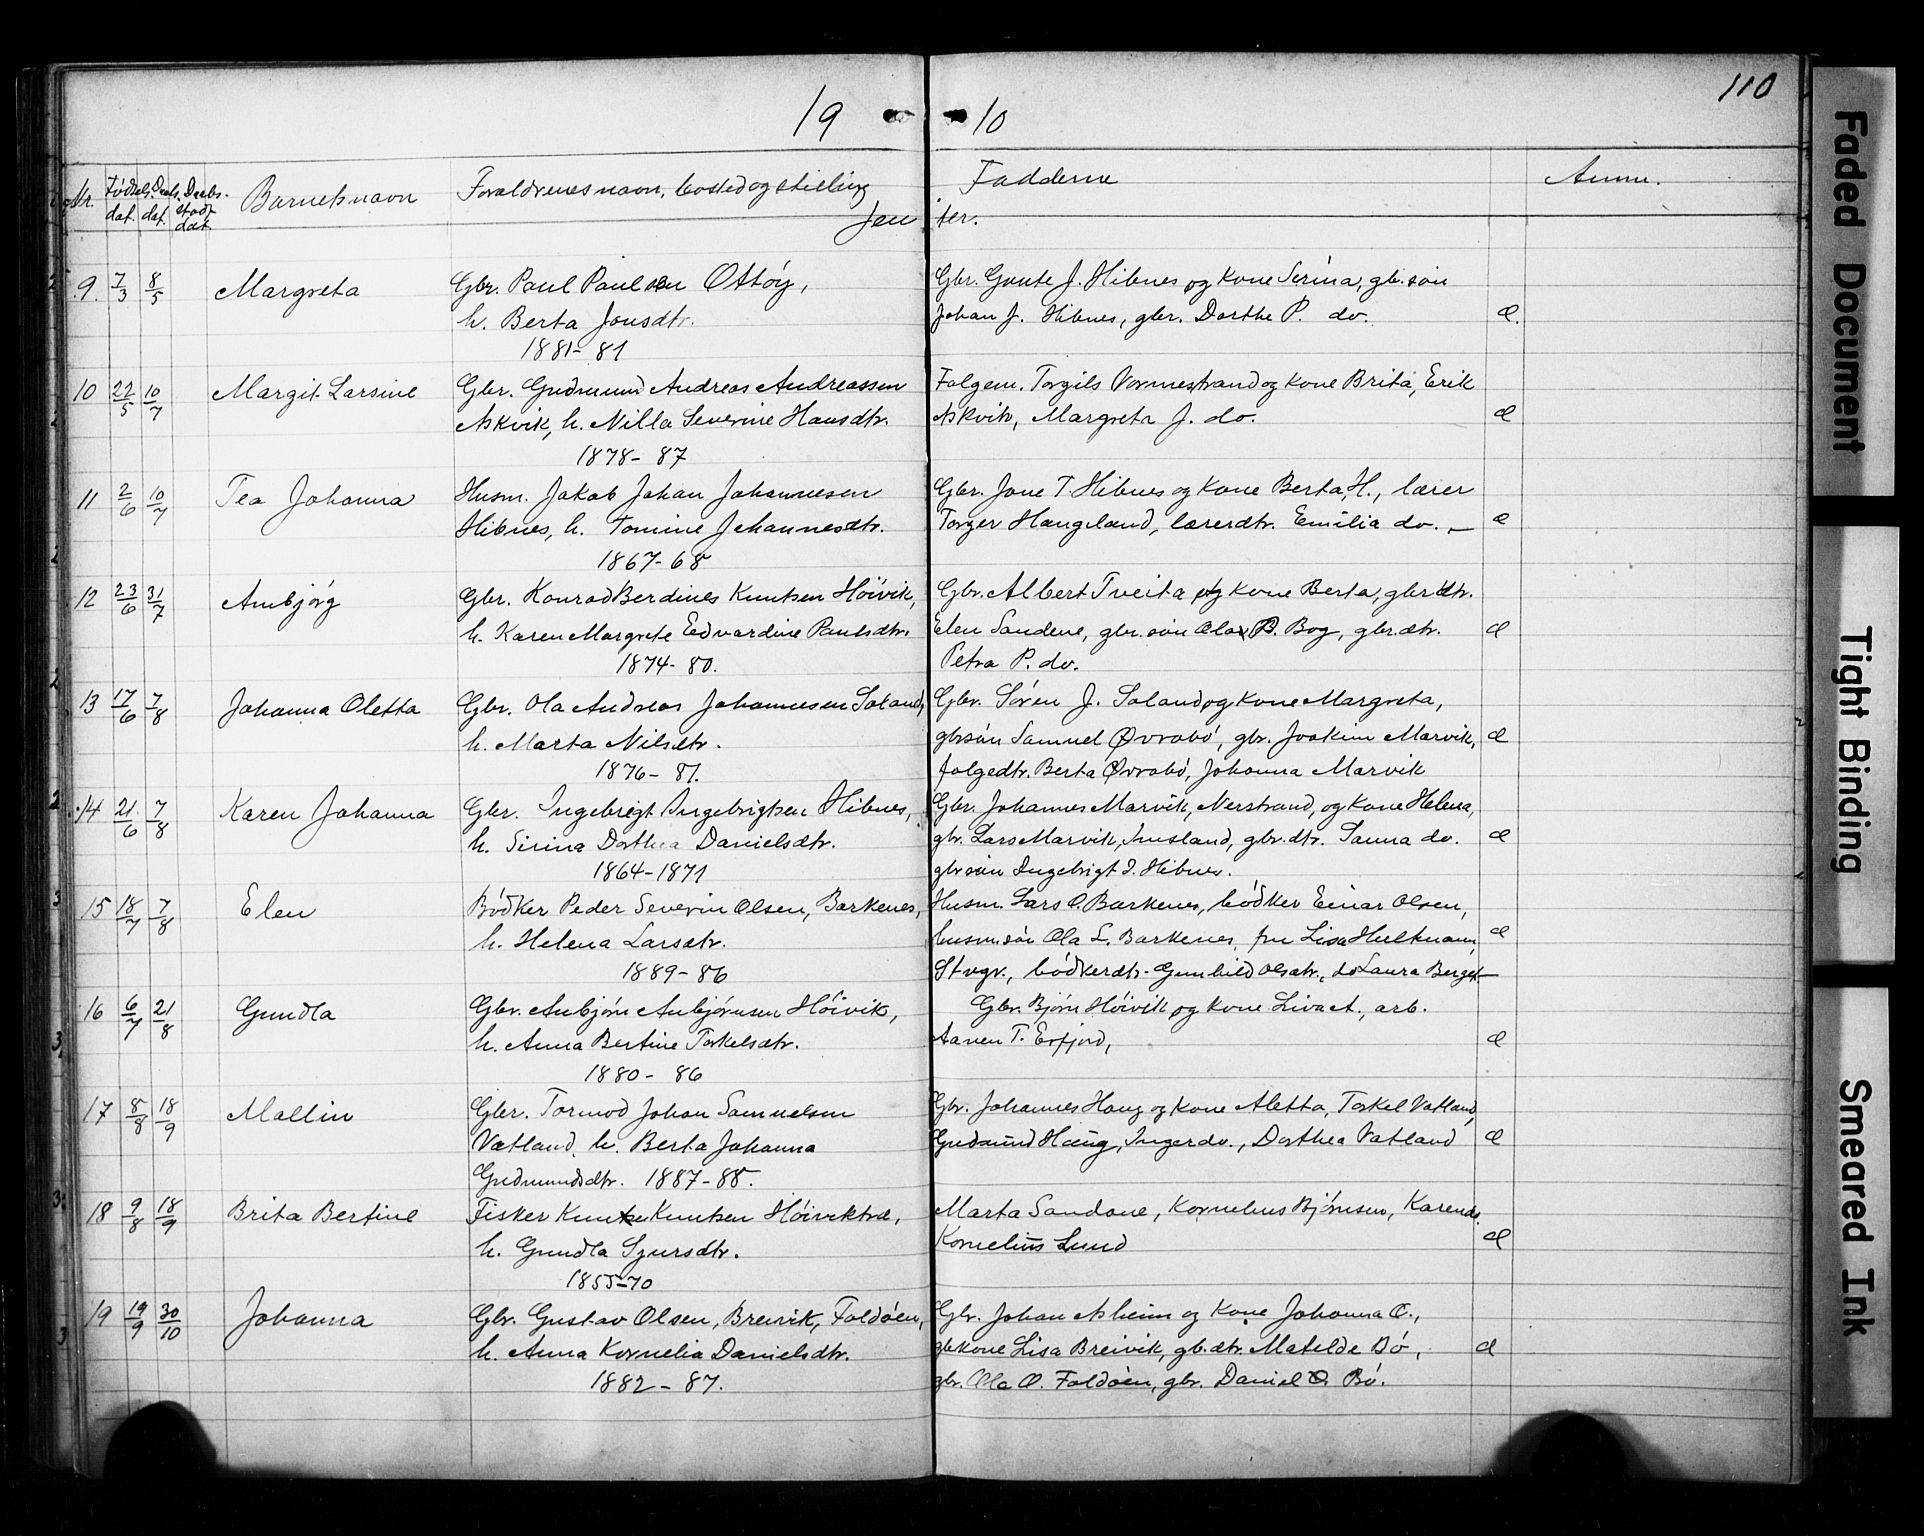 110
19 10
Nr. Fødsels dat. Daabs dat. Daabs-stadf. dat. Barnets navn Forældrenes navn, bosted og stilling Fadderne Anm.
Jenter.
9. 7/3 8/5 Margreta Gbr. Paul Paulsen Ottøy, Gbr. Gaute J. Hibnes og kone Serina, gb. søn
h. Berta Jonsdtr. Johan J. Hibnes, gbr. Dorthe P. do. d.
1881-81
10 22/5 10/7 Margit Larsine Gbr. Gudmund Andreas Andreassen Følgem. Torgils Vormestrand og kone Brita, Erik
Askvik, h. Nilla Severine Hansdtr. Askvik, Margreta J. do. d
1878-87
11 2/6 10/7 Tea Johanna Husm. Jakob Johan Johannesen Gbr. Jone T. Hibnes og kone Berta H., lærer
Hibnes, h. Tomine Johannesdtr. Torger Haugeland, lærerdtr. Emilia do. – d
1867-68
12 23/6 31/7 Anbjørg Gbr. Konrad Berdines Knutsen Høivik, Gbr. Albert Tveita og kone Berta, gbr. dtr.
h. Karen Margrete Edvardine Paulsdtr. Elen Sandene, gbr. søn Ola B. Bog, gbr. dtr. d
1874-80. Petra P. do.
13 17/6 7/8 Johanna Oletta Gbr. Ola Andreas Johannesen Saland, Gbr. Søren J. Saland og kone Margreta,
h. Marta Nilsdtr. gbr søn Samuel Øvrabø, gbr. Joakim Marvik, d
1876-81. følgedtr. Berta Øvrabø, Johanna Marvik
14 21/6 7/8 Karen Johanna Gbr. Ingebrigt Ingebrigtsen Hibnes, Gbr. Johannes Marvik, Nerstrand, og kone Helena,
h. Sirina Dorthea Danielsdtr. gbr. Lars Marvik, Imsland, gbr. dtr. Sanna do. d
1864-1871 gbr søn Ingebrigt I. Hibnes.
15 18/7 7/8 Elen Bødker Peder Severin Olsen, Barkenes, Husm. Lars O. Barkenes, bødker Einar Olsen,
h. Helena Larsdtr. husm. søn Ola L. Barkenes, fru Lisa Hultmann, d
1889-86 Stvgr., bødkerdtr. Gunhild Olsdtr., do Laura Berget
16 6/7 21/8 Gundla Gbr. Anbjørn Anbjørnsen Høivik, Gbr. Bjørn Høivik og kone Liva A., arb.
h. Anna Bertine Torkelsdtr. Aanen T. Erfjord, d
1880-86
17 8/8 18/9 Mallin Gbr. Tormod Johan Samuelsen Gbr. Johannes Haug og kone Aletta, Torkel Vatland,
Vatland, h. Berta Johanna Gudmund Haug, Inger do., Dorthea Vatland d
Gudmundsdtr. 1887-88.
18 9/8 18/9 Brita Bertine Fisker Knut Knutsen Høiviktræ, Marta Sandane, Kornelius Bjørnsen, Karen do.
h. Gundla Sjursdtr. Kornelius Lund d
1855-70
19 19/9 30/10 Johanna Gbr. Gustav Olsen, Breivik, Foldøen, Gbr. Johan Asheim og kone Johanna O.,
h. Anna Kornelia Danielsdtr. gbkone Lisa Breivik, gb. dtr. Matelde Bø, d
1882-87. gbr. Ola O. Foldøen, gbr. Daniel O. Bø.
Faded Document
Tight Binding
Smeared Ink